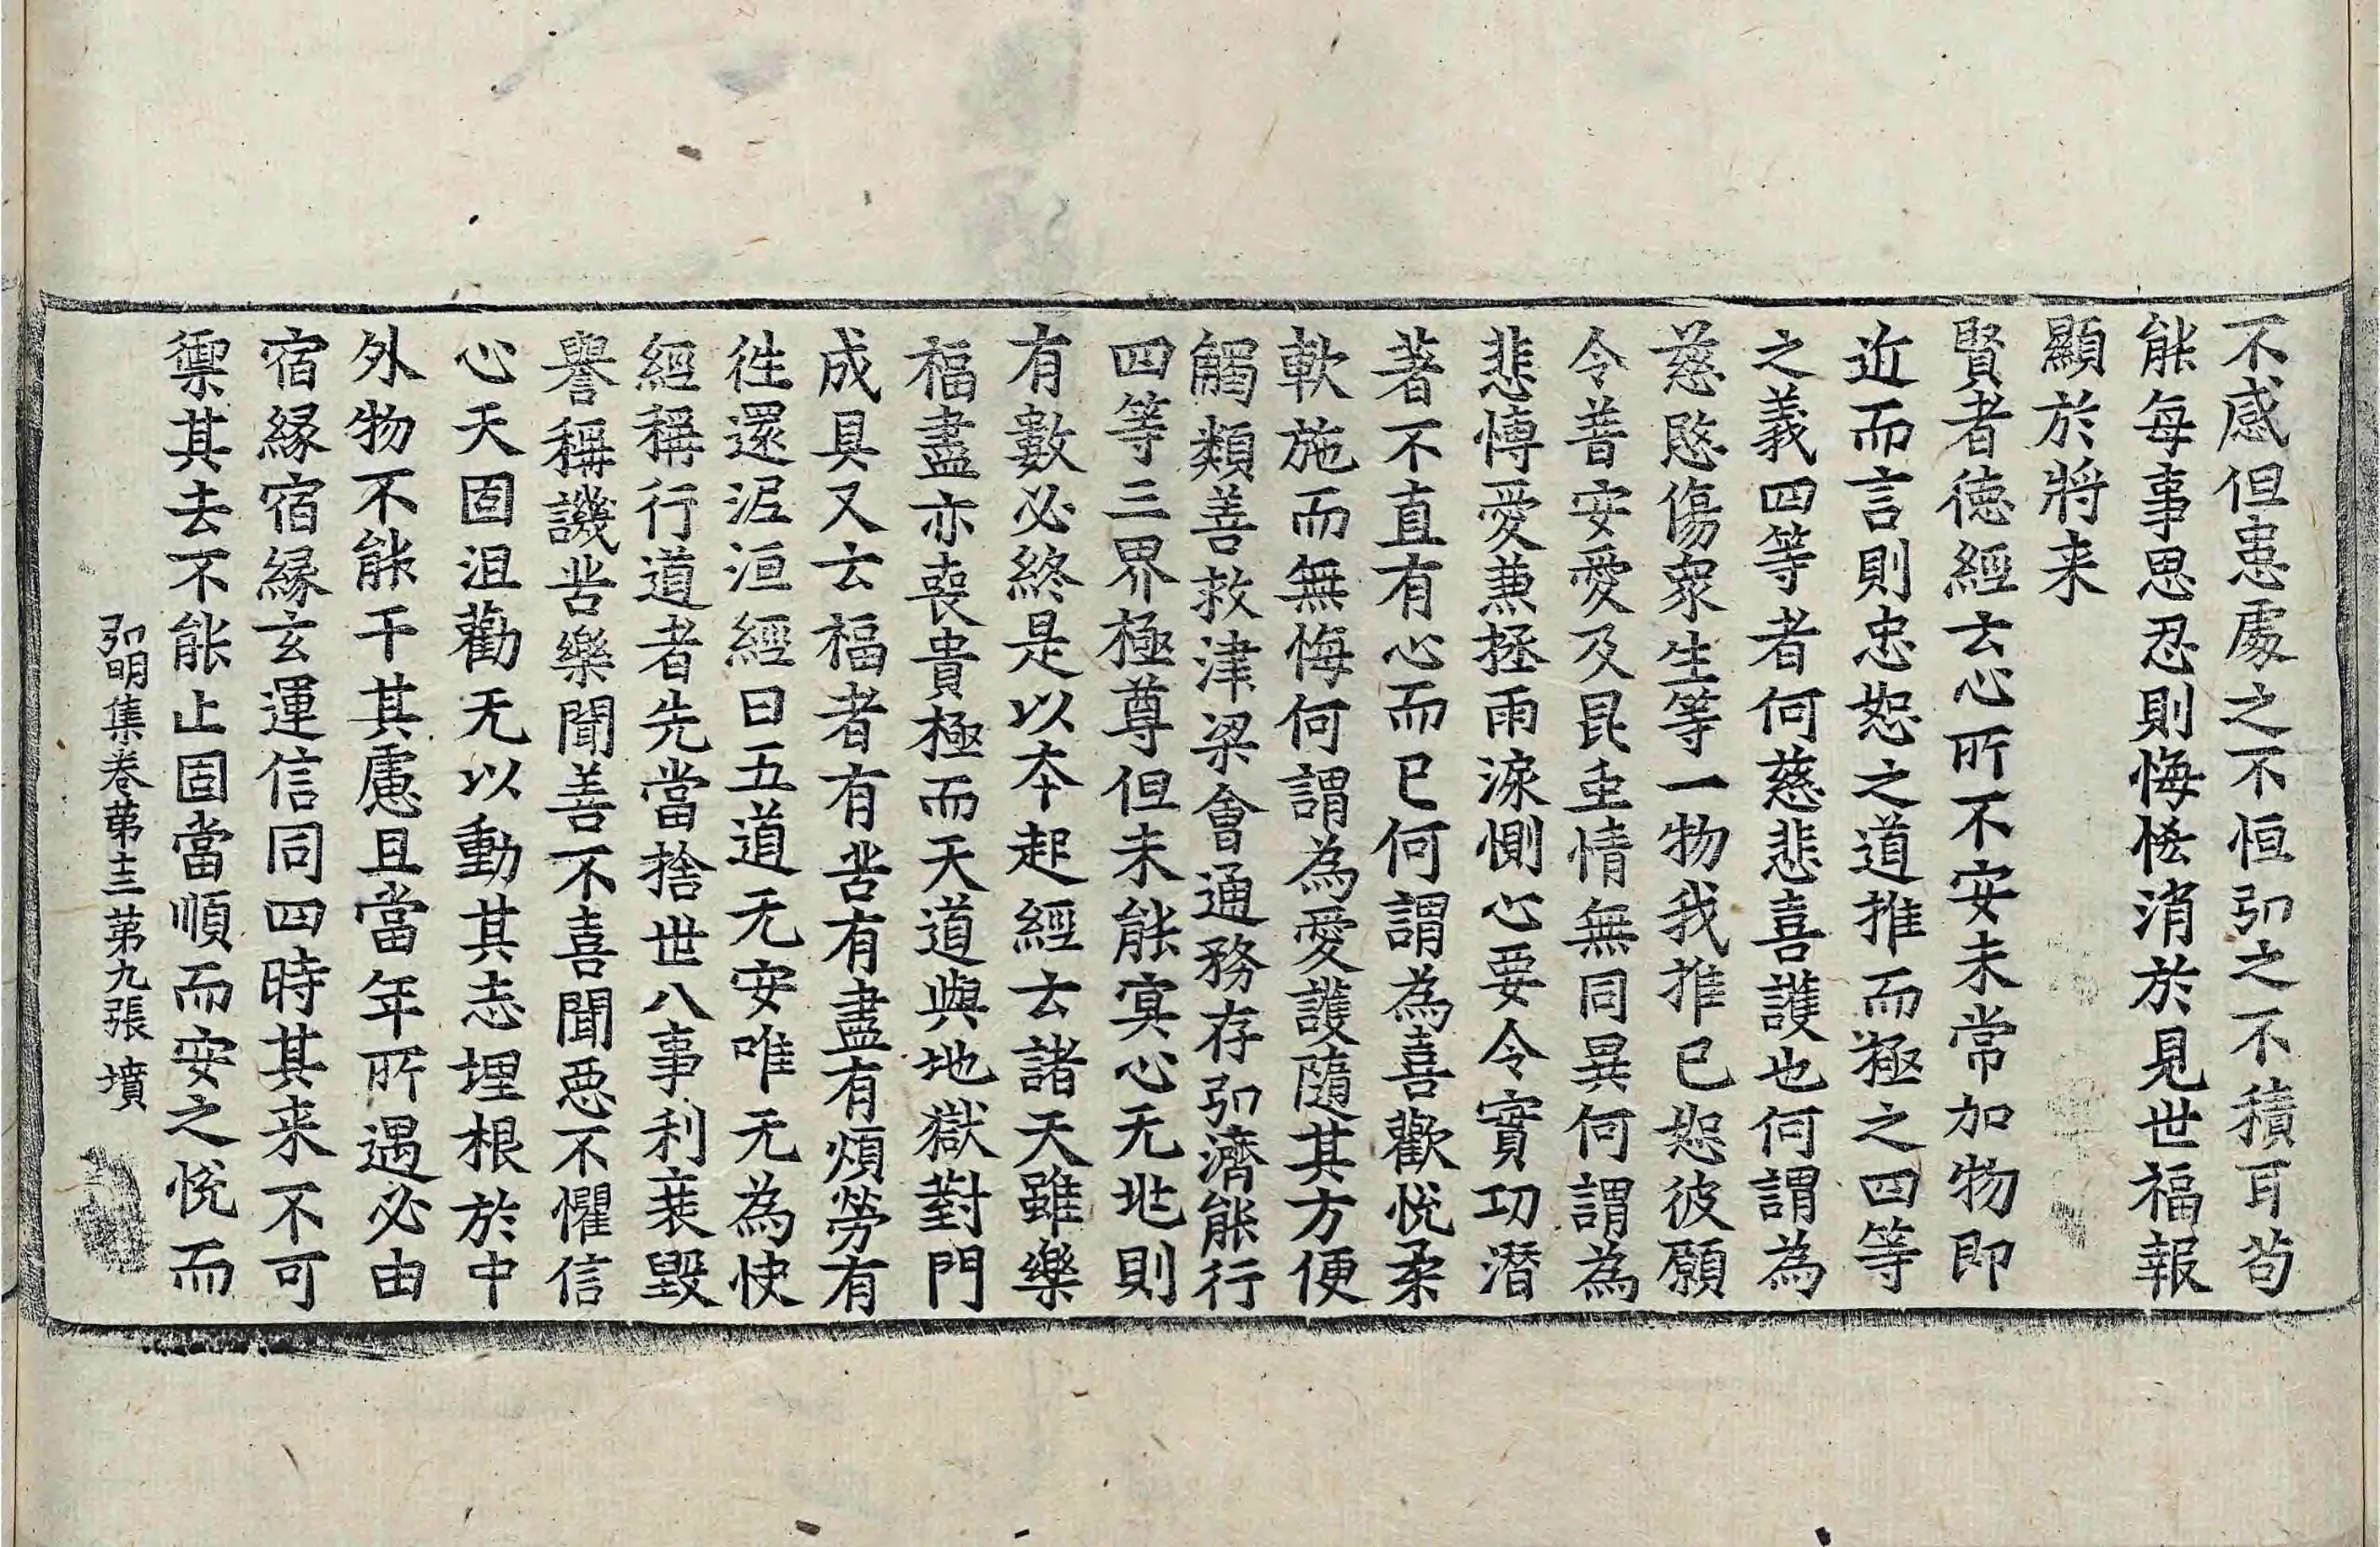 不感但患處之不恒弘之不積耳苟
能每事思忍則悔恡消於見世福報
顯於將来
賢者德經云心所不安未常加物即
近而言則忠恕之道推而極之四等
之義四等者何慈悲喜護也何謂為
慈愍傷衆生等一物我推已恕彼願
令普安愛及昆虫情無同異何謂為
悲愽愛兼拯雨淚惻心要令實功潛
著不直有心而已何謂為喜歡悅柔
軟施而無悔何謂為愛護隨其方便
觸類善救津梁會通務存弘濟能行
四等三界極尊但未能冥心无兆則
有數必終是以本起經云諸天雖樂
福盡亦喪貴極而天道與地獄對門
成具又云福者有苦有盡有煩勞有
徃還泥洹經曰五道无安唯无為快
經稱行道者先當捨世八事利衰毀
譽稱譏苦樂聞善不喜聞惡不懼信
心天固沮勸无以動其志埋根於中
外物不能干其慮且當年所遇必由
宿緣宿緣玄運信同四時其来不可
禦其去不能止固當順而安之悅而
弘明集卷第十三第九張 墳